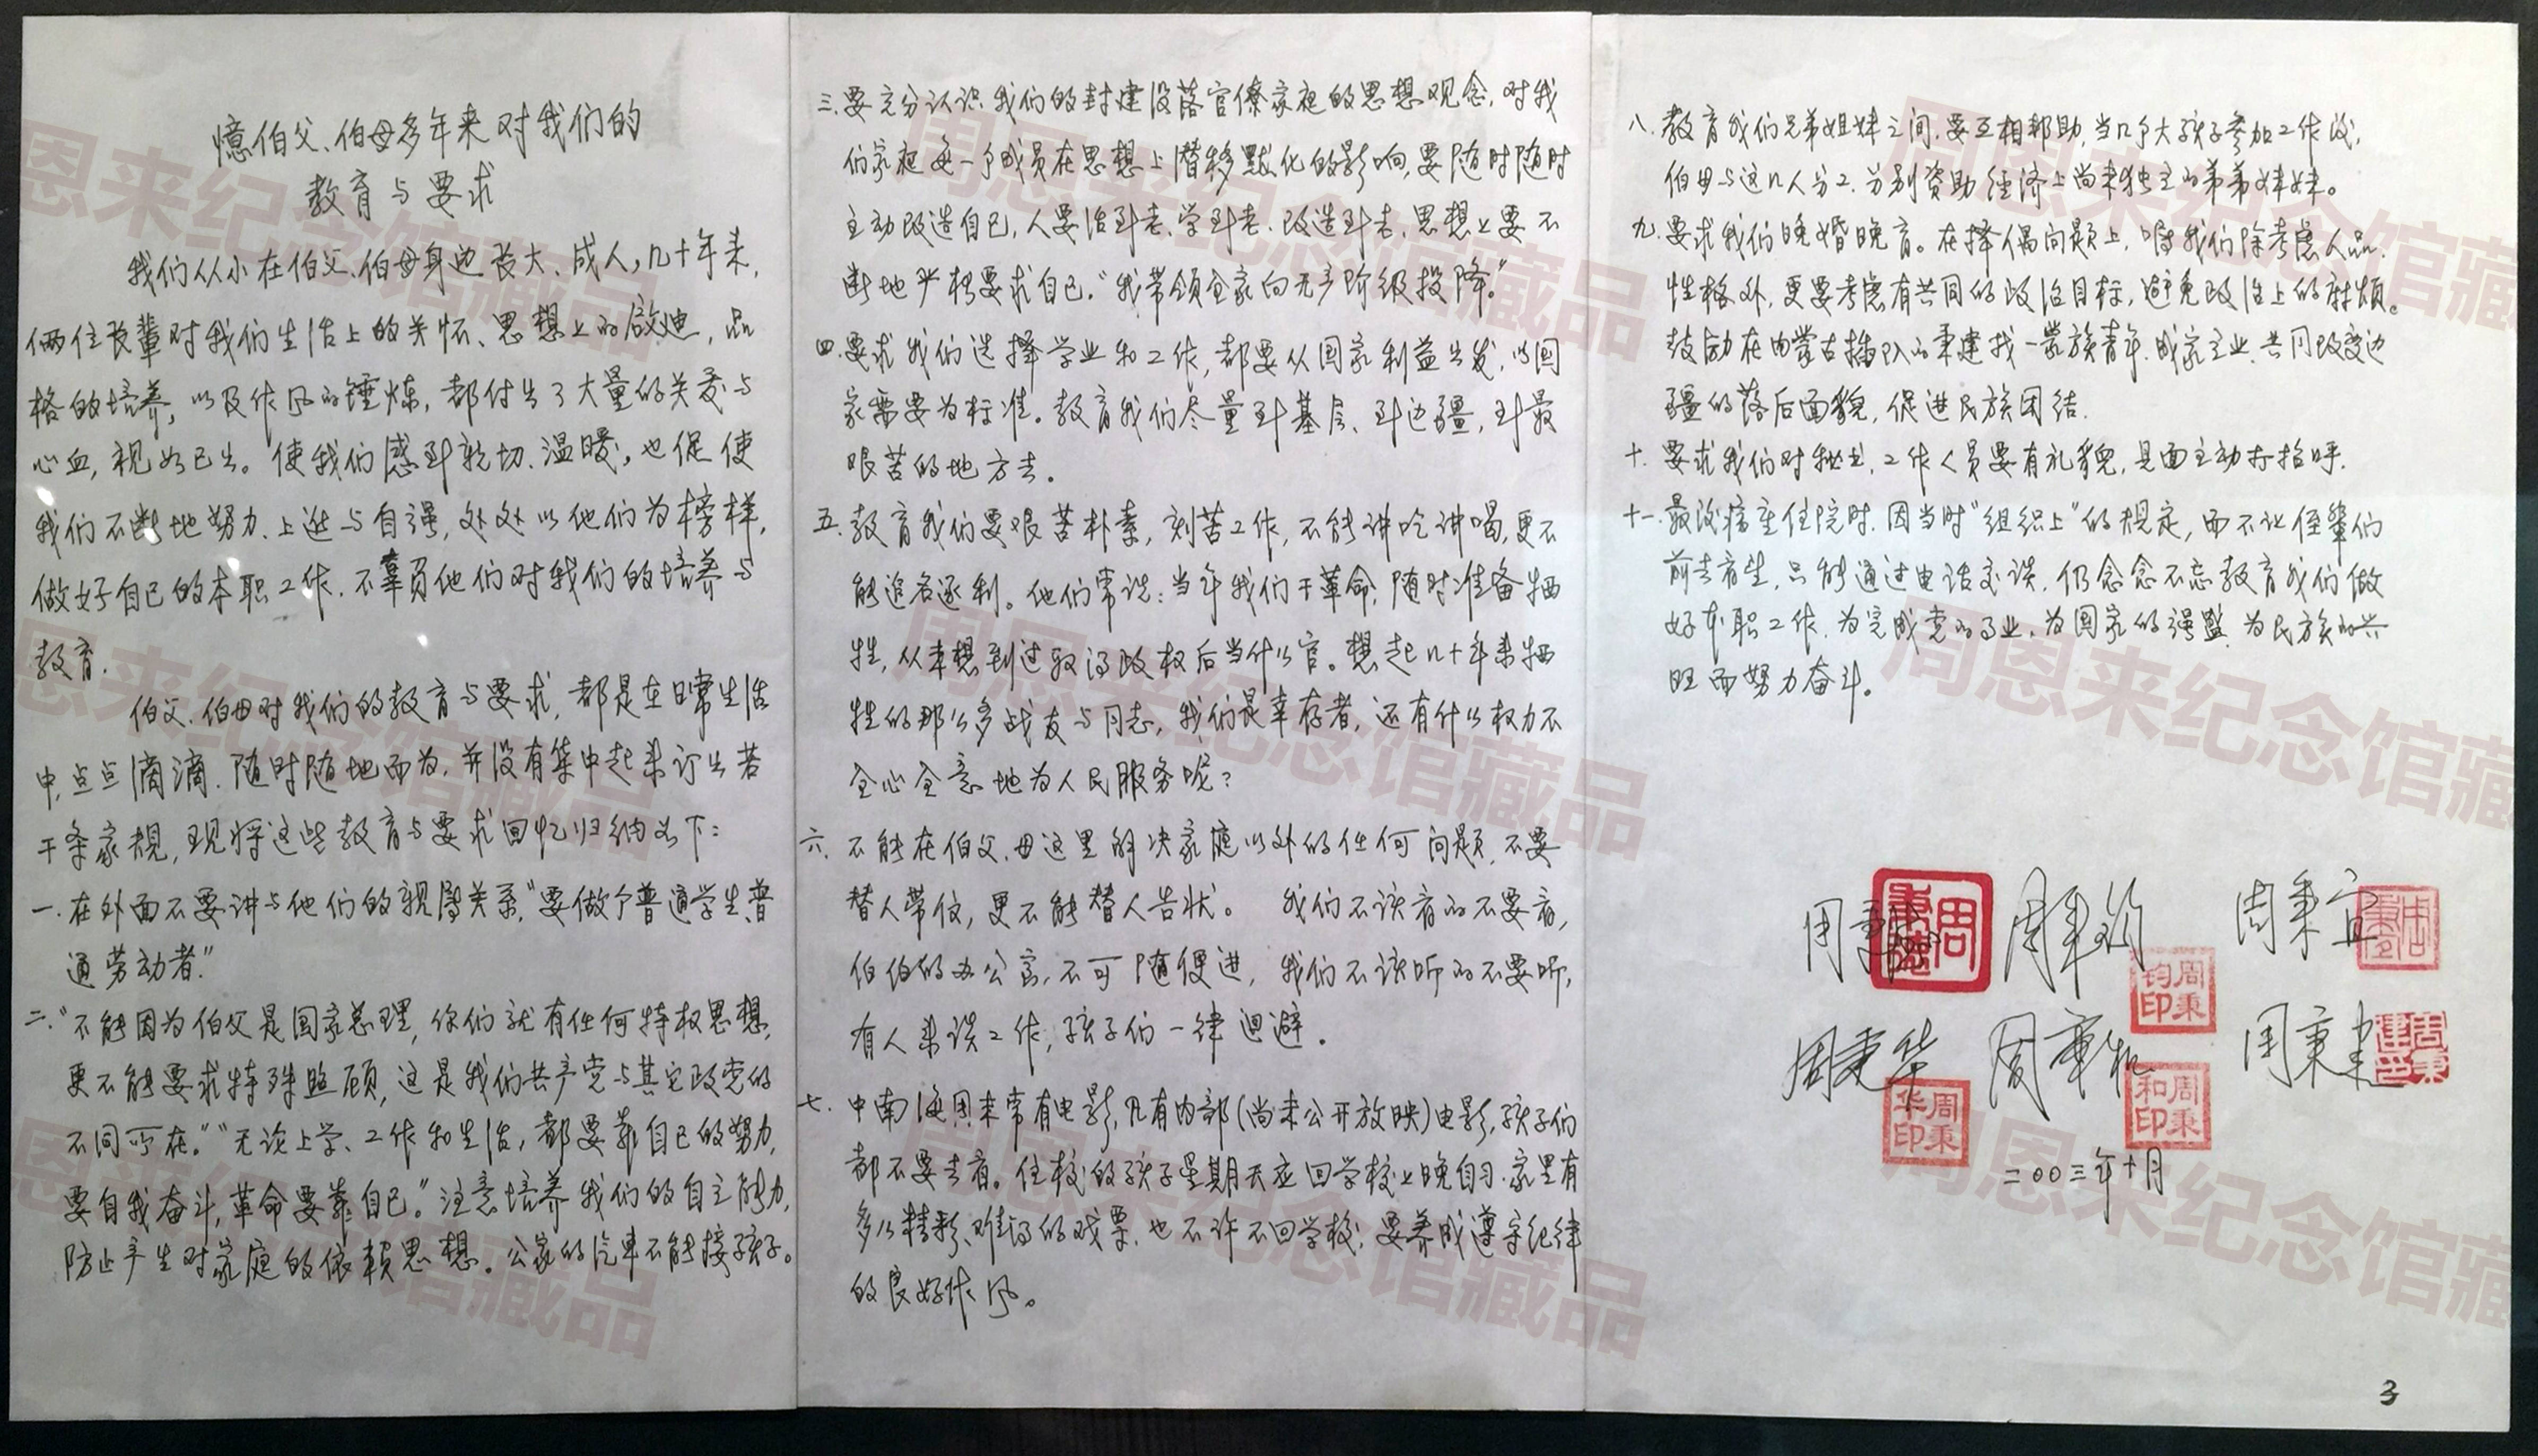 憶伯父、伯母多年来对我们的
教育与要求
我们从小在伯父、伯母身边长大、成人，几十年来，
俩位长辈对我们生活上的关怀、思想上的啟迪，品
格的培养，以及作风的锤炼，都付出了大量的关爱与
心血，视如已出。使我们感到亲切、温暖，也促使
我们不断地努力、上进与自强，处处以他们为榜样，
做好自己的本职工作，不辜负他们对我们的培养与
教育。
伯父、伯母对我们的教育与要求，都是在日常生活
中，点点滴滴、随时随地而为，并没有集中起来订出若
干条家規，现将这些教育与要求回忆归纳如下：
一.在外面不要讲与他们的親属关系，“要做个普通学生、普
通劳动者。”
二.“不能因为伯父是国家总理，你们就有任何特权思想，
更不能要求特殊照顾，这是我们共产党与其它政党的
不同所在。”“无论上学、工作和生活，都要靠自己的努力，
要自我奋斗，革命要靠自己。”注意培养我们的自立能力，
防止产生对家庭的依赖思想。公家的汽車不能接孩子。
三.要充分认识我们的封建没落官僚家庭的思想观念，对我
们家庭每一个成员在思想上潜移默化的影响，要随时随时
主动改造自己，人要活到老、学到老、改造到老，思想上要不
断地严格要求自己。“我带领全家向无产阶级投降。”
四.要求我们选择学业和工作，都要从国家利益出发，以国
家需要为标准。教育我们尽量到基层、到边疆，到最
艰苦的地方去。
五.教育我们要艰苦朴素，刻苦工作，不能讲吃讲喝，更不
能追名逐利。他们常说：当年我们干革命，随时准备牺
牲，从来想到过取得政权后当什么官。想起几十年来牺
牲的那么多战友与同志，我们是幸存者，还有什么权力不
全心全意地为人民服务呢？
六.不能在伯父、母这里解决家庭以外的任何问题，不要
替人带信，更不能替人告状。 我们不该看的不要看，
伯伯的办公室，不可随便进，我们不该听的不要听，
有人来谈工作，孩子们一律迴避。
七.中南海周末常有电影，凡有内部（尚未公开放映）电影，孩子们
都不要去看。住校的孩子星期天应回学校上晚自习，家里有
多么精彩、难得的戏票，也不许不回学校，要养成遵守纪律
的良好作风。
八.教育我们兄弟姐妹之间，要互相帮助，当几个大孩子参加工作后，
伯母与这几人分工，分别资助经济上尚未独立的弟弟妹妹。
九.要求我们晚婚晚育。在择偶问题上，嘱我们除考虑人品、
性格外，更要考虑有共同的政治目标，避免政治上的麻烦。
鼓励在内蒙古插队的秉建找一蒙族青年，成家立业，共同改变边
疆的落后面貌，促进民族团结。
十.要求我们对秘书、工作人员要有礼貌，見面主动打招呼。
十一.最后病重住院时，因当时“组织上”的规定，而不让侄輩们
前去看望，只能通过电话交谈，仍念念不忘教育我们做
好本职工作，为完成党的事业，为国家的强盛，为民族的兴
旺而努力奋斗。
周秉德 周秉钧 周秉宜
周秉德
周秉宜
周秉钧印
周秉华 周秉和 周秉建
周秉建邑
周秉华印
周秉和印
二〇〇三年十月
3
周恩来纪念馆藏品